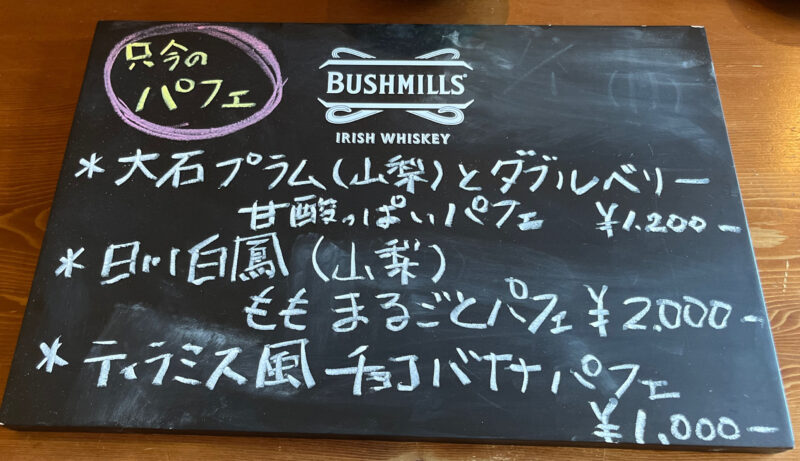 只今の
パフェ
BUSHMILLS
IRISH WHISKEY
*大石プラム(山梨)とダブルベリー
甘酸っぱいパフェ ¥1.200-
*日川白鳳(山梨)
ももまるごとパフェ ¥2.000-
*ティラミス風チョコバナナパフェ
¥1.000-